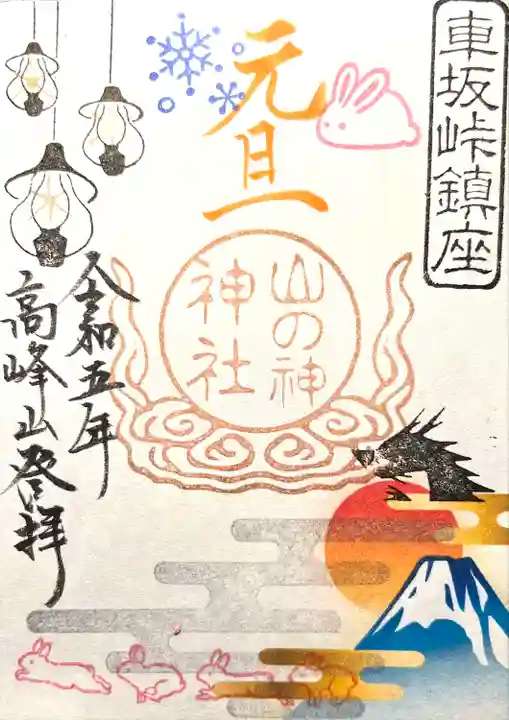 車坂峠鎮座
元旦
山の神
神社
令和五年
高峰山登拝